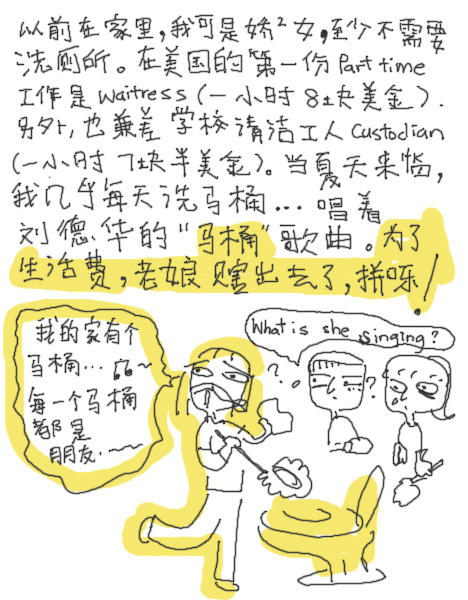 以前在家里,我可是娇²女,至少不需要
洗厕所。在美国的第一份 Part time
工作是 Waitress (一小时 8块美金).
另外,也兼差 学校清洁工人 Custodian
(一小时 7块半美金)。当夏天来临,
我几乎每天洗马桶... 唱着
刘德华的"马桶"歌曲。为了
生活费,老娘 豁出去了,拼呀!
我的家有个
马桶...♫~
每一个马桶
都是
朋友.~~
What is she singing?
?
?